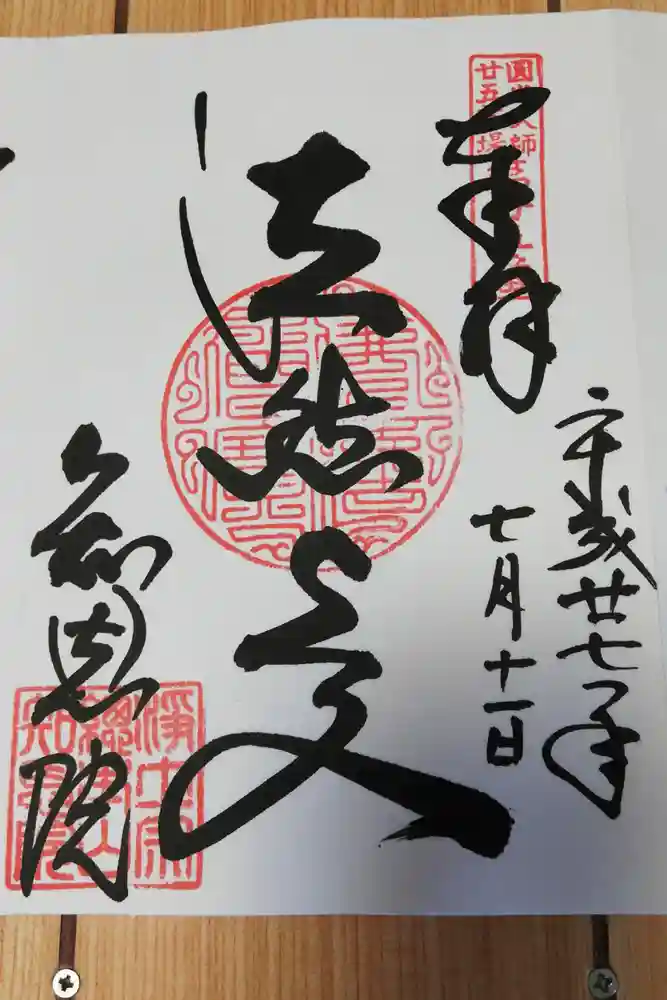 圓光大師
廿五霊場
奉拝
平成廿七年
七月十一日
法然上人
知恩院
淨土宗
總本山
知恩院